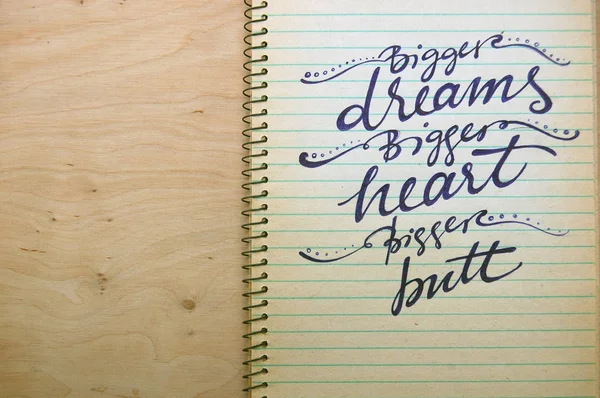 Bigger
dreams
Bigger
heart
Bigger
butt